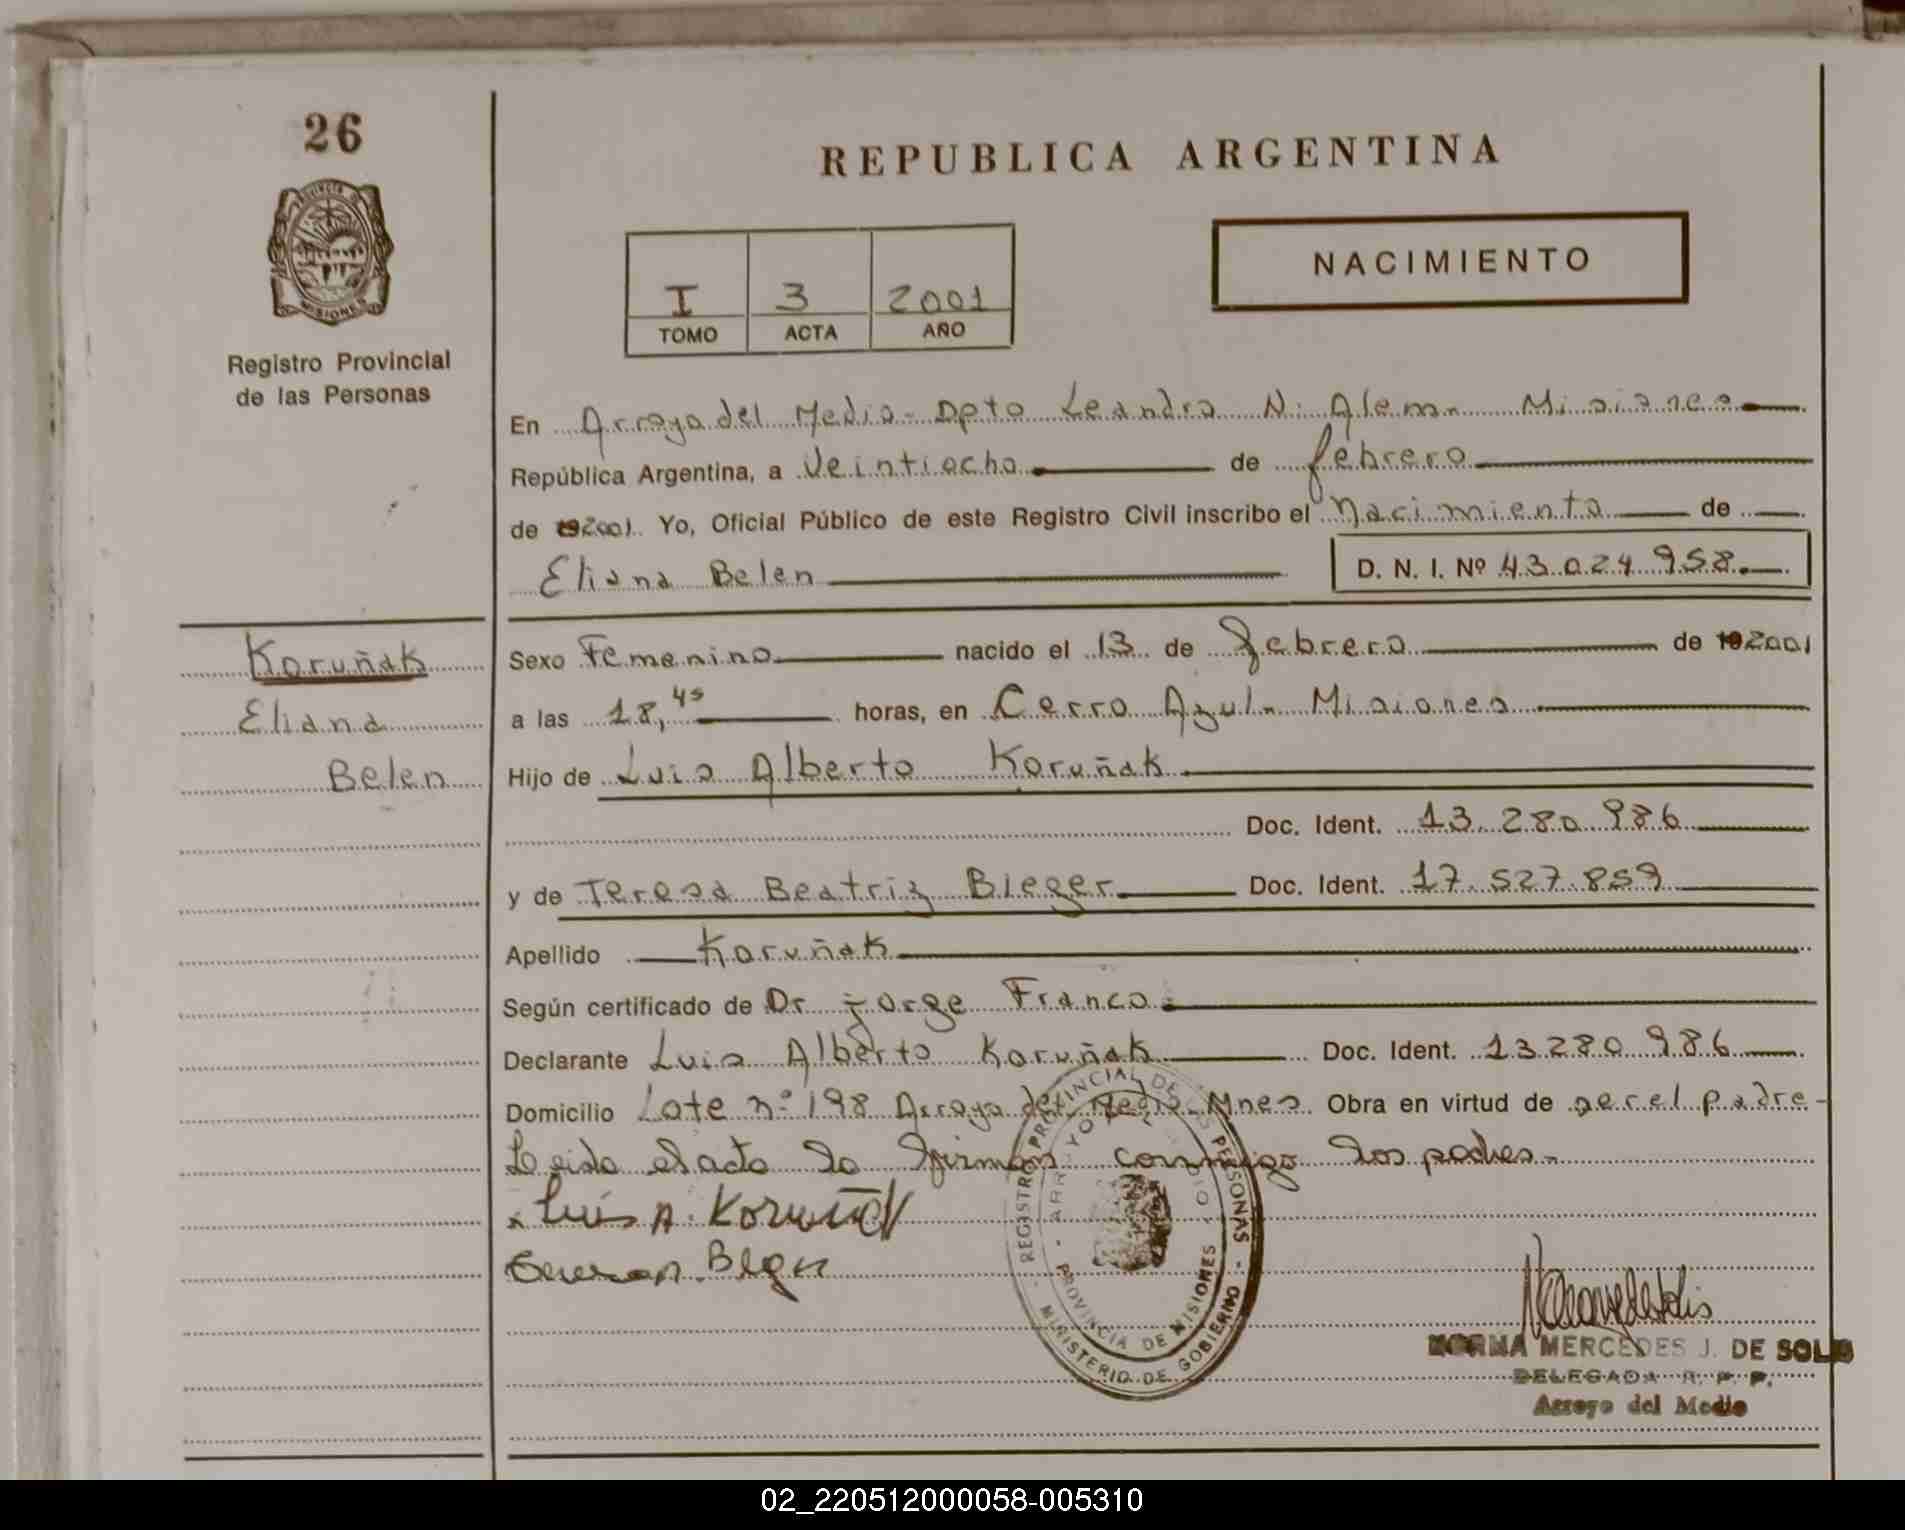 26
REPUBLICA ARGENTINA
I 3 2001
TOMO ACTA AÑO
NACIMIENTO
Registro Provincial
de las Personas
En Arroyo del Medio - Dpto Leandro N. Alem - Misiones
República Argentina, a Veintiocho de febrero
de 2001. Yo, Oficial Público de este Registro Civil inscribo el Nacimiento de
Eliana Belen D. N. I. Nº 43.024.958.
Koruñak
Eliana
Belen
Sexo Femenino nacido el 13 de febrero de 2001
a las 18,45 horas, en Cerro Azul - Misiones
Hijo de Luis Alberto Koruñak
Doc. Ident. 13.280.986
y de Teresa Beatriz Bieger Doc. Ident. 17.527.859
Apellido Koruñak
Según certificado de Dr. Jorge Franco
Declarante Luis Alberto Koruñak Doc. Ident. 13.280.986
Domicilio Lote nº 198 Arroyo del Medio - Mnes Obra en virtud de ser el padre -
Leida el acta la firman conmigo los padres -
Luis A. Koruñak
REGISTRO PROVINCIAL DE LAS PERSONAS
MINISTERIO DE GOBIERNO
ARROYO DEL MEDIO
PROVINCIA DE MISIONES
NORMA MERCEDES J. DE SOLIS
DELEGADA R. P. P.
Arroyo del Medio
02_220512000058-005310